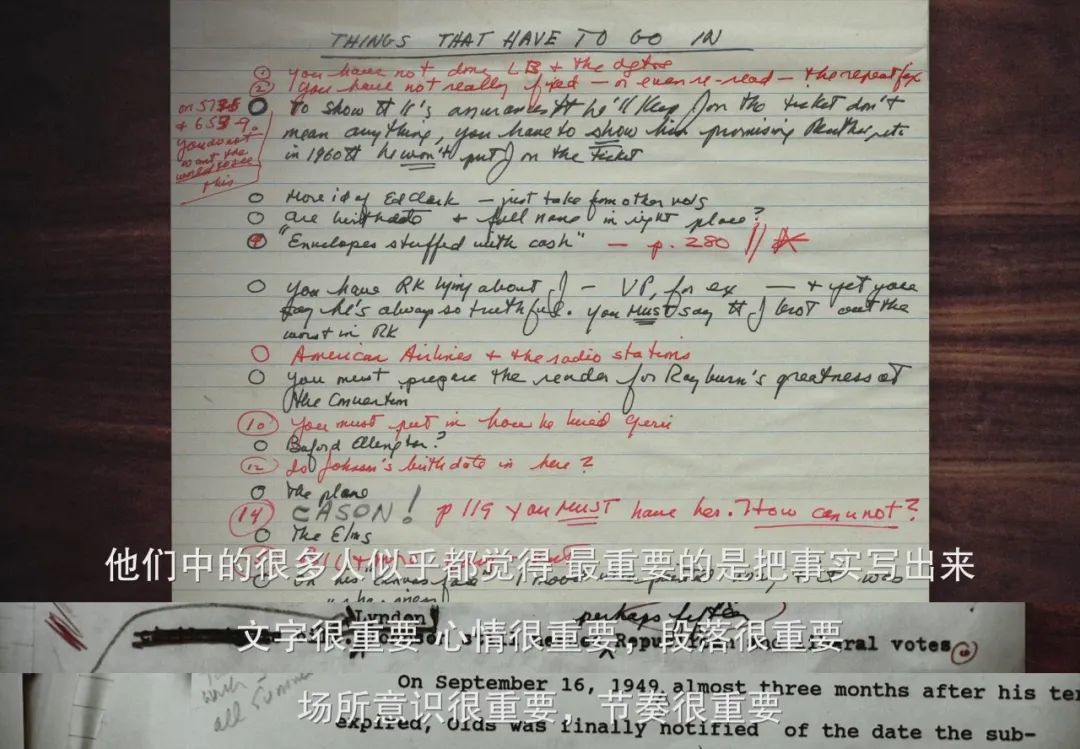 THINGS THAT HAVE TO GO IN
① You have not done LB + the
② You have not really fixed — or even re-read — the repeat
To show tt J's assurances tt he'll keep J on the ticket don't
mean anything, you have to show him promising Reuther, etc
in 1960 tt he won't put J on the ticket
you do not
want the
world to see
this
More id of Ed Clark — just take from other vols
are birthdate + full name in right place?
"Envelopes stuffed with cash" — p. 280
You have RK lying about J — VP, for ex — + yet you
say he's always so truthful. You MUST say tt J brot out the
worst in RK
American Airlines + the radio stations
You must prepare the reader for Rayburn's greatness at
the Convention
10 You must put in how he
Buford Ellington?
12 Is Johnson's birthdate in here?
The plane
14 CASON! p 119 You MUST have her. How can u not?
The Elms
他们中的很多人似乎都觉得 最重要的是把事实写出来
Lyndon
perhaps fifteen
文字很重要 心情很重要，段落很重要
votes
work
all summer
On September 16, 1949, almost three months after his ter
场所意识很重要，节奏很重要
expired, Olds was finally notified of the date the sub-